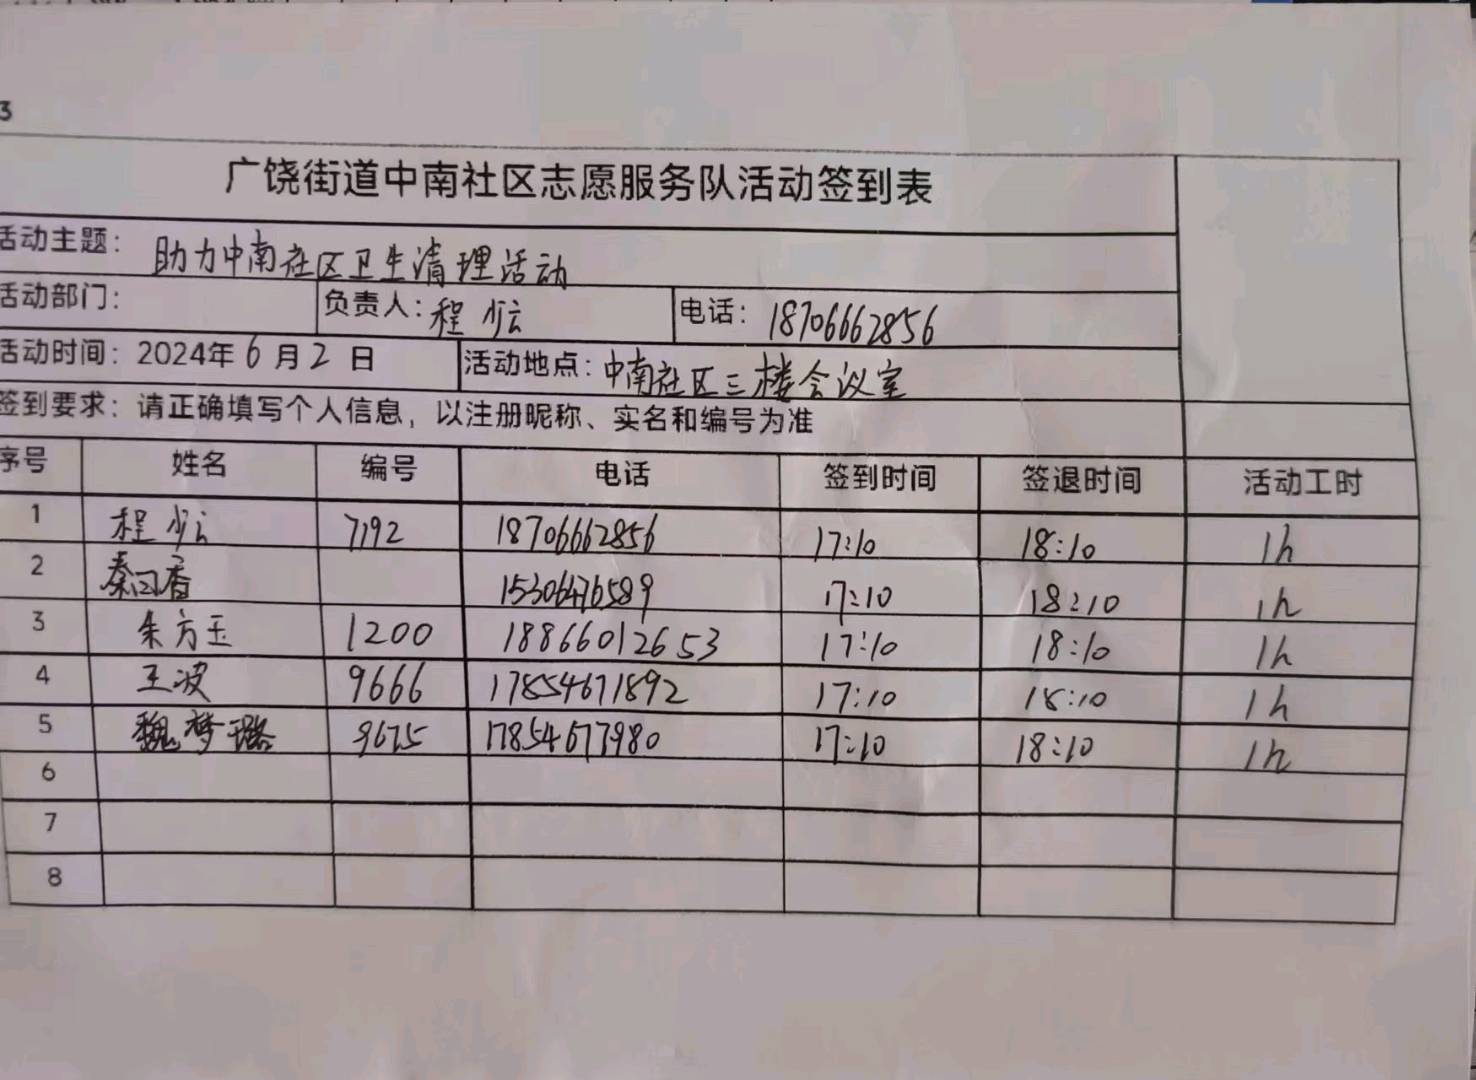 3
广饶街道中南社区志愿服务队活动签到表
活动主题： 助力中南社区卫生清理活动
活动部门： 负责人：程少云 电话：18706662856
活动时间：2024年6月2日 活动地点：中南社区三楼会议室
签到要求：请正确填写个人信息，以注册昵称、实名和编号为准
序号 姓名 编号 电话 签到时间 签退时间 活动工时
1 程少云 7192 18706662856 17:10 18:10 1h
2 15306476589 17:10 18:10 1h
3 朱方玉 1200 18866012653 17:10 18:10 1h
4 王波 9666 17854671892 17:10 18:10 1h
5 魏梦璐 9675 17854677980 17:10 18:10 1h
6
7
8